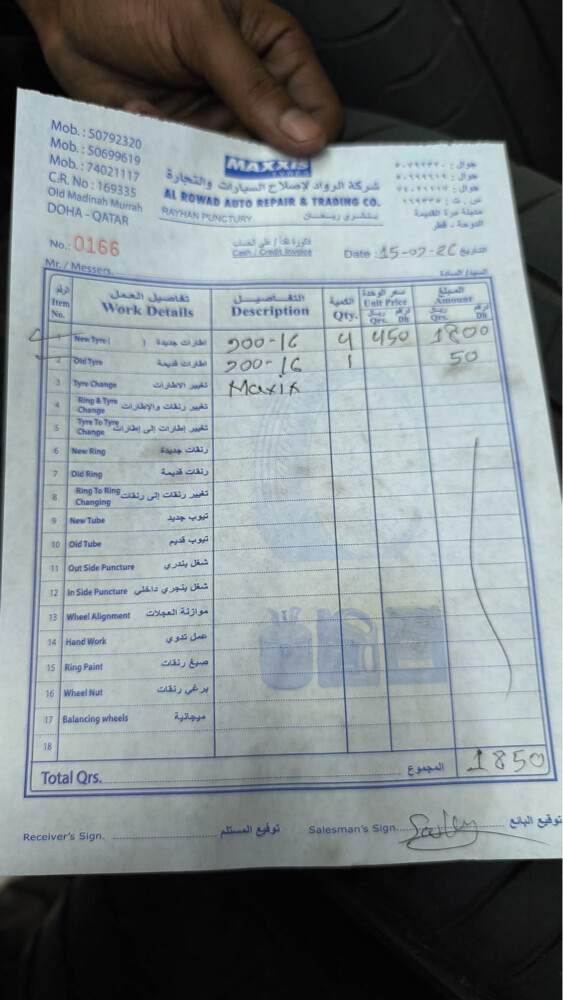 Mob.: 50792320
Mob.: 50699619
Mob.: 74021117
C.R. No : 169335
Old Madinah Murrah
DOHA - QATAR
MAXXIS
TYRES
شركة الرواد لإصلاح السيارات والتجارة
AL ROWAD AUTO REPAIR & TRADING CO.
RAYHAN PUNCTURY بنشري ريحان
جوال : ٥٠٧٩٢٣٢٠
جوال : ٥٠٦٩٩٦١٩
جوال : ٧٤٠٢١١١٧
س . ت : ١٦٩٣٣٥
مدينة مرة القديمة
الدوحة - قطر
No.: 0166
فاتورة نقداً / على الحساب
Cash / Credit Invoice
Date : 15-02-26 التاريخ
Mr. / Messers. السيد / السادة
رقم تفاصيل العمل التفاصيل الكمية سعر الوحدة المبلغ
Item No. Work Details Description Qty. Unit Price Amount
ريال Qrs. درهم Dh ريال Qrs. درهم Dh
1 New Tyre ( ) اطارات جديدة 900-16 4 450 1800
2 Old Tyre اطارات قديمة 900-16 1 50
3 Tyre Change تغيير الاطارات Maxix
4 Ring & Tyre Change تغيير رنقات والإطارات
5 Tyre To Tyre Change تغيير إطارات إلى إطارات
6 New Ring رنقات جديدة
7 Old Ring رنقات قديمة
8 Ring To Ring Changing تغيير رنقات إلى رنقات
9 New Tube تيوب جديد
10 Old Tube تيوب قديم
11 Out Side Puncture شغل بندري
12 In Side Puncture شغل بنجري داخلي
13 Wheel Alignment موازنة العجلات
14 Hand Work عمل تدوي
15 Ring Paint صبغ رنقات
16 Wheel Nut برغي رنقات
17 Balancing wheels ميجانية
18
Total Qrs. المجموع 1850
Receiver's Sign. توقيع المستلم Salesman's Sign. توقيع البائع